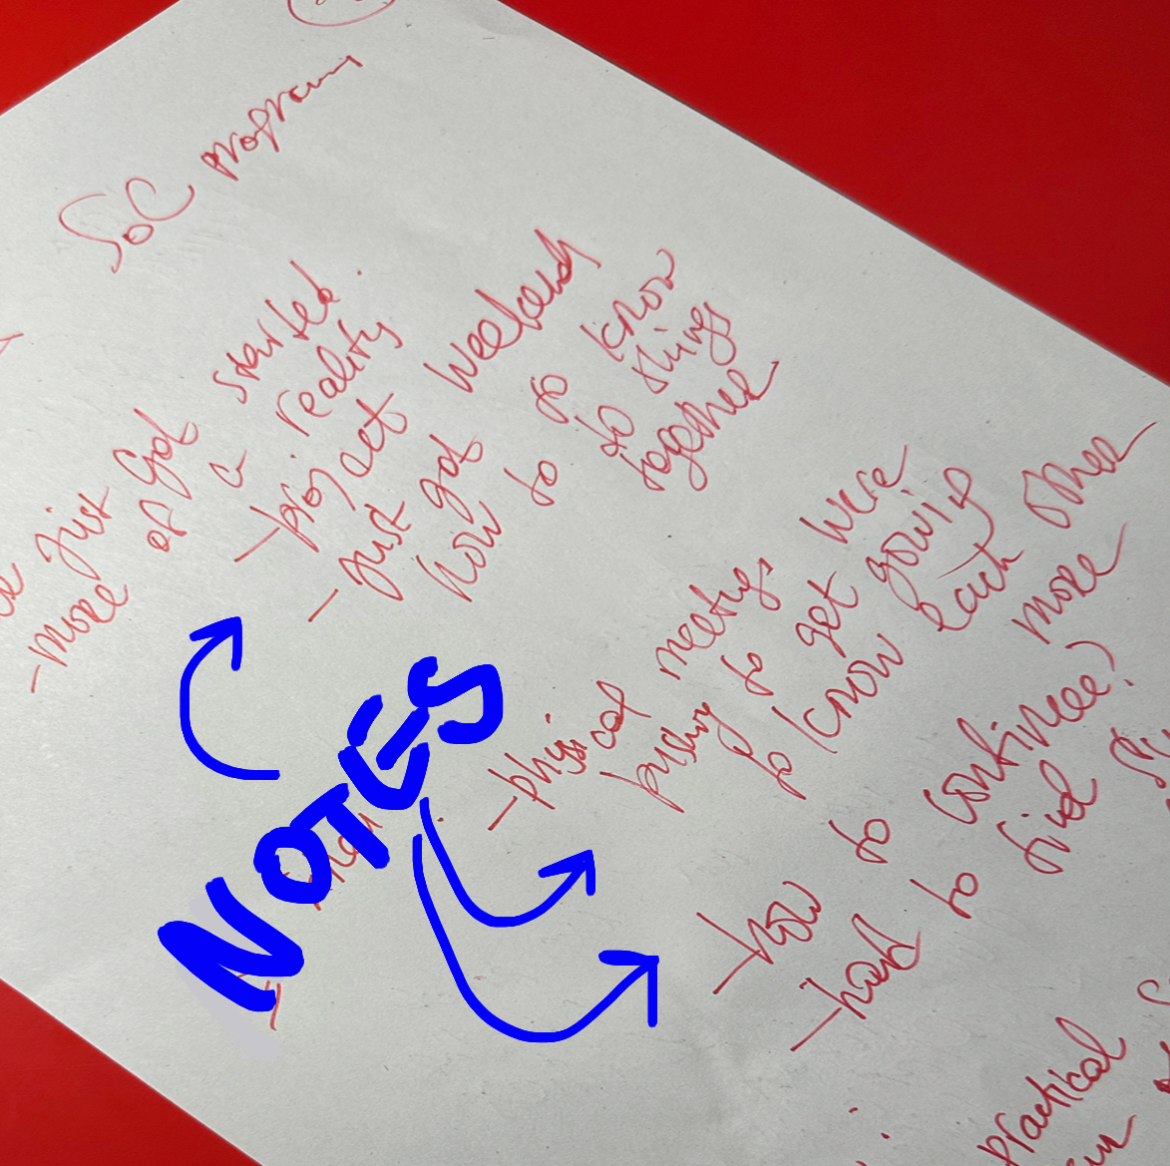 SoC program
just got started
- more of a reality
- project weekends
- Just got to know
how to do things
together
NOTES
- physical meetings were
pushing to get going
to know each other
- how to continue? more
- hard to find
practical